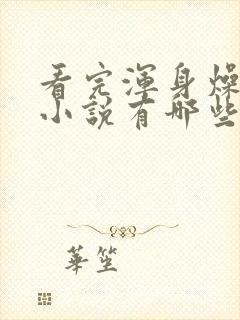 看完渾身燥
小說有哪些
華笙